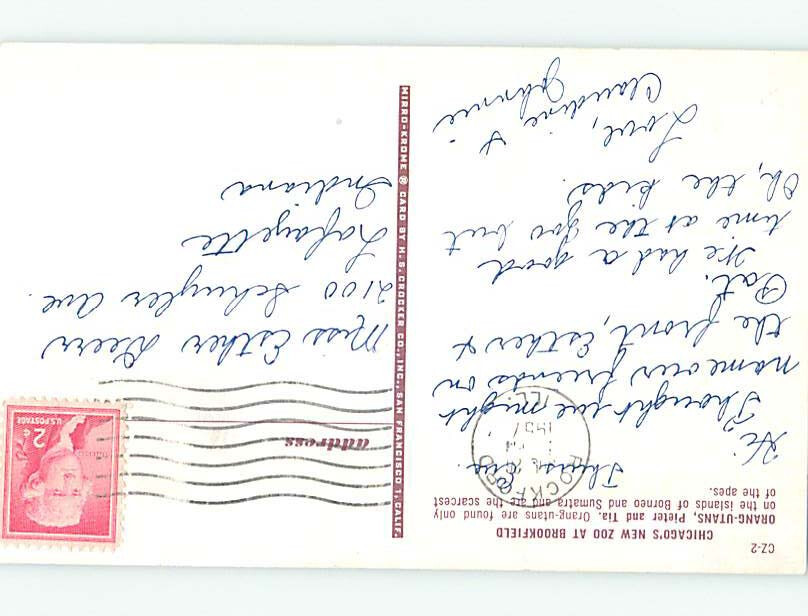 CZ-2
CHICAGO'S NEW ZOO AT BROOKFIELD
ORANG-UTANS, Pieter and Tia. Orang-utans are found only
on the islands of Borneo and Sumatra and are the scarcest
of the apes.
Thurs. Eve.
Hi,
Thought we might
name our friends on
the front, Esther &
Pat.
We had a good
time at the zoo but
Oh, the kids.
Love,
Claudine &
Johnnie
ROCKFORD
1957
ILL.
MIRRO-KROME ® CARD BY H. S. CROCKER CO., INC., SAN FRANCISCO 1, CALIF.
address
U.S. POSTAGE
2¢
Miss Esther Deerr
2100 Schuyler Ave.
Lafayette
Indiana